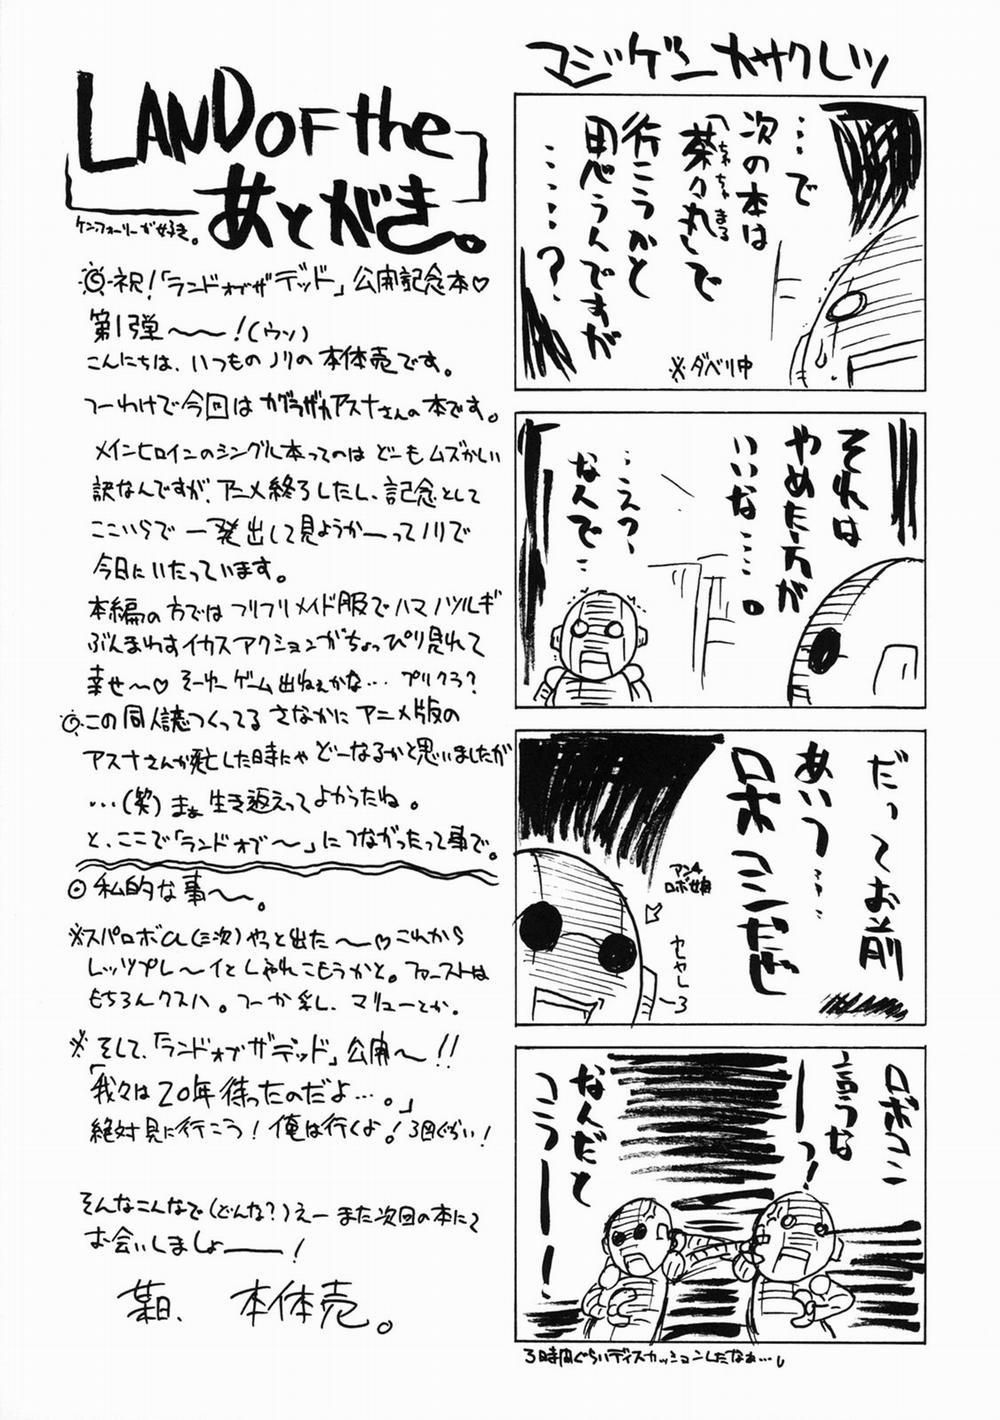 マジゲンカサクレツ
…で
次の本は
「茶々丸」で
ちゃちゃまる
行こうかと
思うんですが
…………?
※ダベリ中
それは
やめた方が
いいな…。
…えっ、
なんで…
だってお前
あいつ…
ロボコンだぜ
アンチ
ロボ娘
ヒャヒャし〜ろ
ロボコン
言うな
ーーっ!
なんだと
コラーー!
3時間ぐらいディスカッションしたなぁ…。
LAND OF the
あとがき。
ケン・フォーリーが好き。
◎祝!「ランドオブザデッド」公開記念本♡
第1弾〜〜!(ウソ)
こんにちは、いつものノリの本体売です。
つーわけで今回はカグラザカアスナさんの本です。
メインヒロインのシングル本ってのはどーもムズかしい
訳なんですが、アニメ終了したし、記念として
ここいらで一発出して見ようかーってノリで
今日にいたっています。
本編の方ではフリフリメイド服でハマノツルギ
ぶんまわすイカスアクションがちょっぴり見れて
幸せ〜♡ そーゆーゲーム出ねぇかな… プリクラ?
◎この同人誌つくってるさなかにアニメ版の
アスナさんが死亡した時にゃどーなるかと思いましたが
…(笑)まぁ生き返えってよかったね。
と、ここで「ランドオブ〜」につながったって事で。
◎私的な事〜。
※スパロボα(三次)やっと出た〜♡これから
レッツプレ〜イとしゃれこもうかと。ファーストは
もちろんクスハ。つーか乳し、マリューとか。
※そして、「ランドオブザデッド」公開〜!!
「我々は20年待ったのだよ…。」
絶対見に行こう!俺は行くよ!3回ぐらい!
そんなこんなで(どんな?)えーまた次回の本にて
お会いしましょーー!
某日、 本体売。